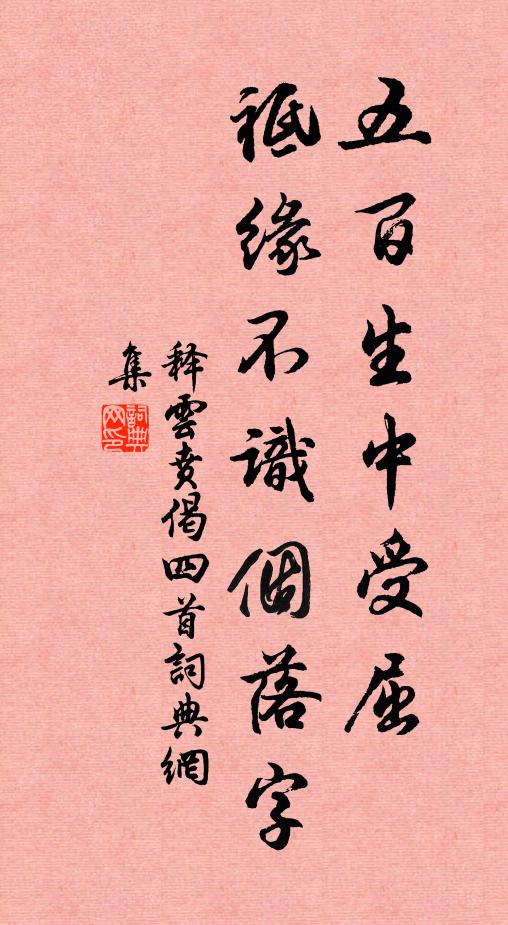 五百生中受屈
祗緣不識個落字
释雲贲偈四首詞典網
集
詞典
网印